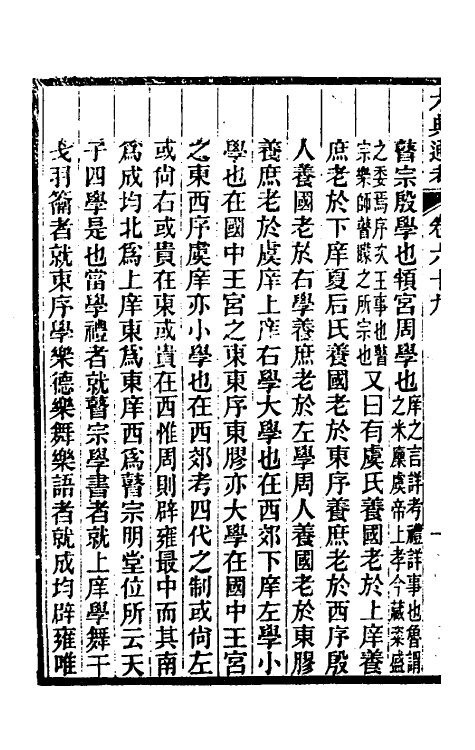 六典通考 卷六十九 一
瞽宗殷學也頖宮周學也庠之言詳考禮詳事也魯謂之米廩虞帝上孝今藏粢盛
之委焉序次王事也瞽宗樂師瞽矇之所宗也又曰有虞氏養國老於上庠養
庶老於下庠夏后氏養國老於東序養庶老於西序殷
人養國老於右學養庶老於左學周人養國老於東膠
養庶老於虞庠上庠右學大學也在西郊下庠左學小
學也在國中王宮之東東序東膠亦大學在國中王宮
之東西序虞庠亦小學也在西郊考四代之制或尚左
或尚右或貴在東或貴在西惟周則辟雍最中而其南
爲成均北爲上庠東爲東序西爲瞽宗明堂位所云天
子四學是也當學禮者就瞽宗學書者就上庠學舞干
戈羽籥者就東序學樂德樂舞樂語者就成均辟雍唯